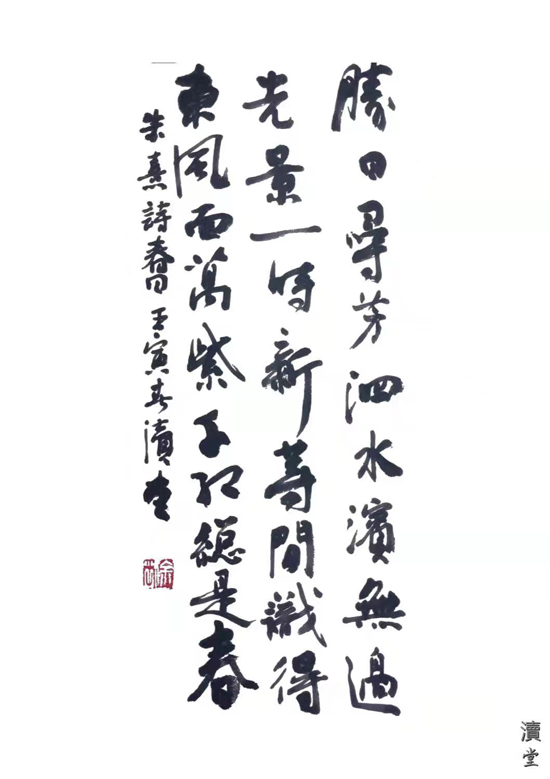 勝日尋芳泗水濱無邊
光景一時新等間識得
東風面萬紫千紅總是春
朱熹詩春日壬寅春瀆堂
瀆堂